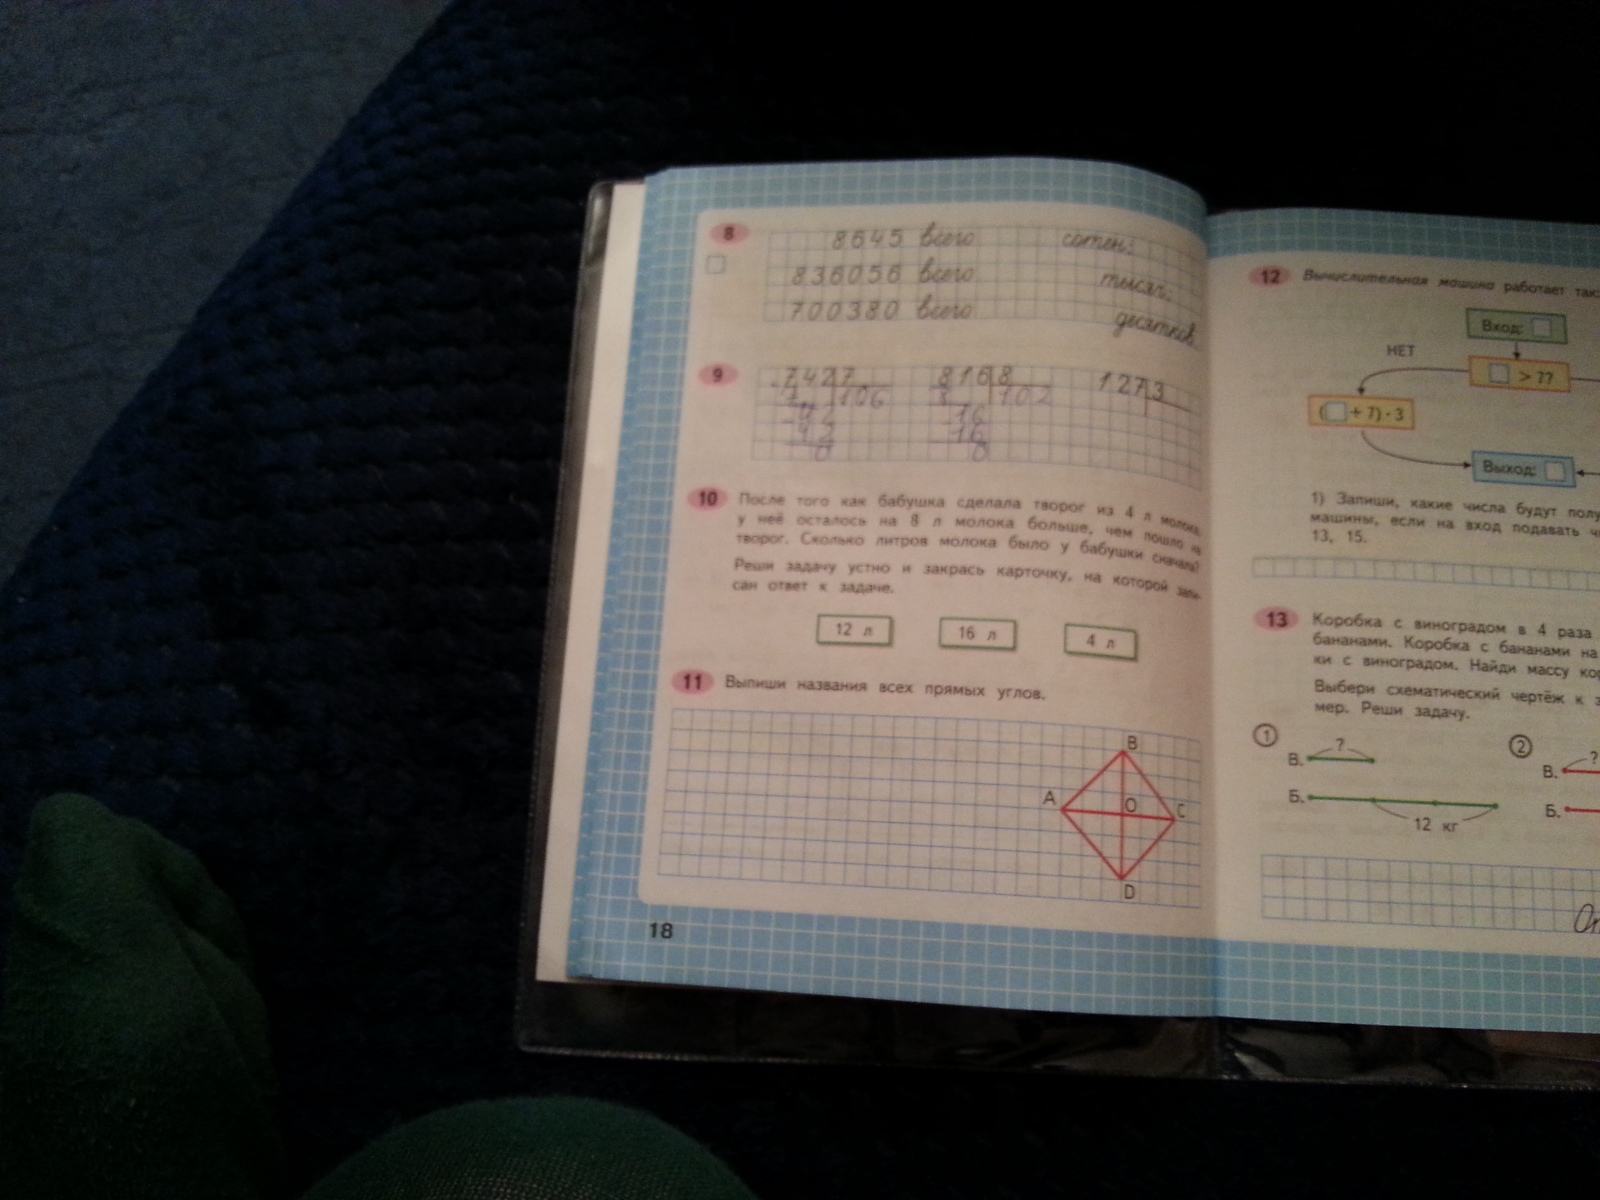 8
8645 всего сотен;
836056 всего тысяч;
700380 всего десятков.
9
742 7 816 8 127 3
7 106 8 102
42 16
42 16
0 0
10 После того как бабушка сделала творог из 4 л молока,
у неё осталось на 8 л молока больше, чем пошло на
творог. Сколько литров молока было у бабушки сначала?
Реши задачу устно и закрась карточку, на которой запи-
сан ответ к задаче.
12 л 16 л 4 л
11 Выпиши названия всех прямых углов.
B
A O C
D
18
12 Вычислительная машина работает так:
Вход:
НЕТ
> ??
( + 7) · 3
Выход:
1) Запиши, какие числа будут
машины, если на вход подавать
13, 15.
13 Коробка с виноградом в 4 раза
бананами. Коробка с бананами на
ки с виноградом. Найди массу
Выбери схематический чертёж к
мер. Реши задачу.
1 2
В. ? В. ?
Б. Б.
12 кг